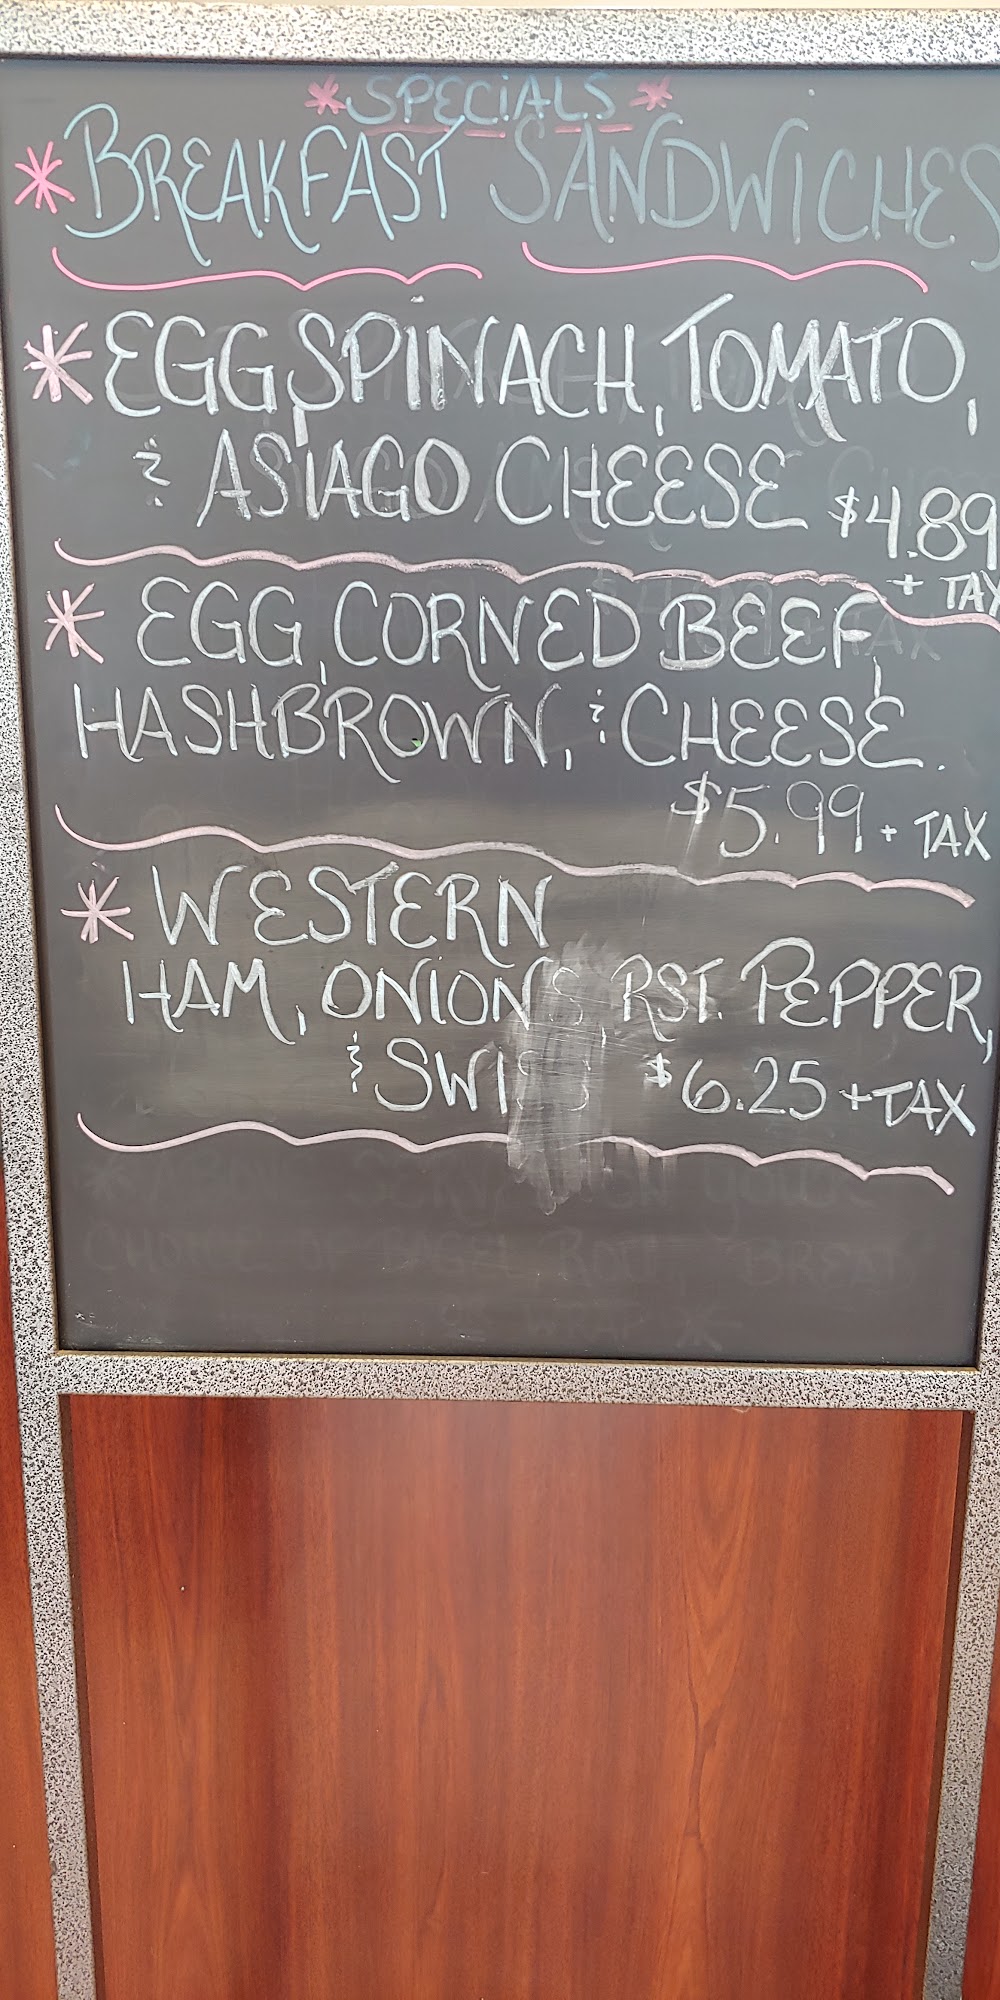 * SPECIALS *
* BREAKFAST SANDWICHES
* EGG, SPINACH, TOMATO,
& ASIAGO CHEESE $4.89
+ TAX
* EGG, CORNED BEEF,
HASHBROWN, & CHEESE.
$5.99 + TAX
* WESTERN
HAM, ONIONS RST. PEPPER,
& SWISS $6.25 + TAX